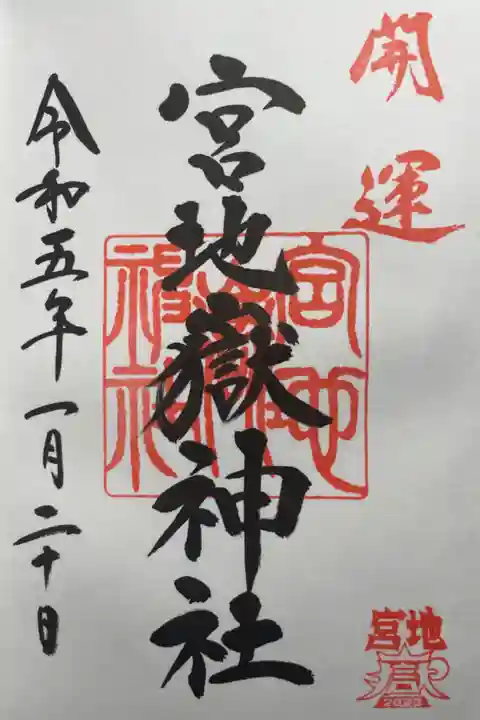 開運
宮地嶽神社
令和五年一月二十日
宮地嶽神社
宮地
嶽
2023